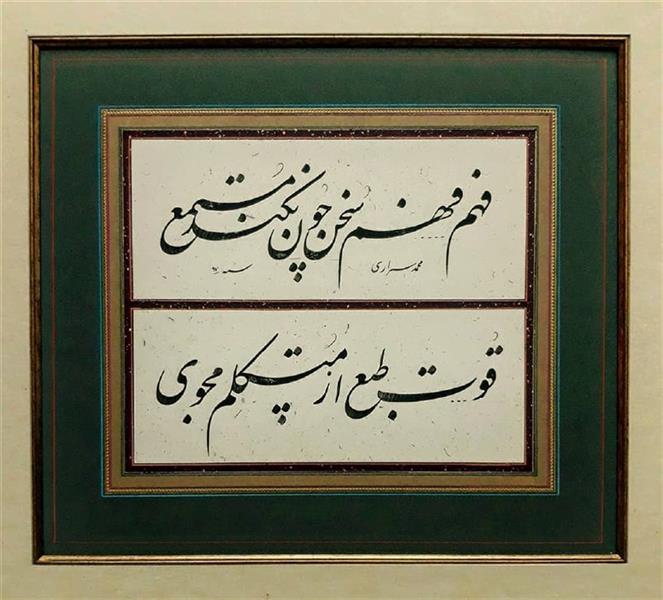 فهم فهم سخن چون نکند مستمع
قوت طبع از متکلم مجوی